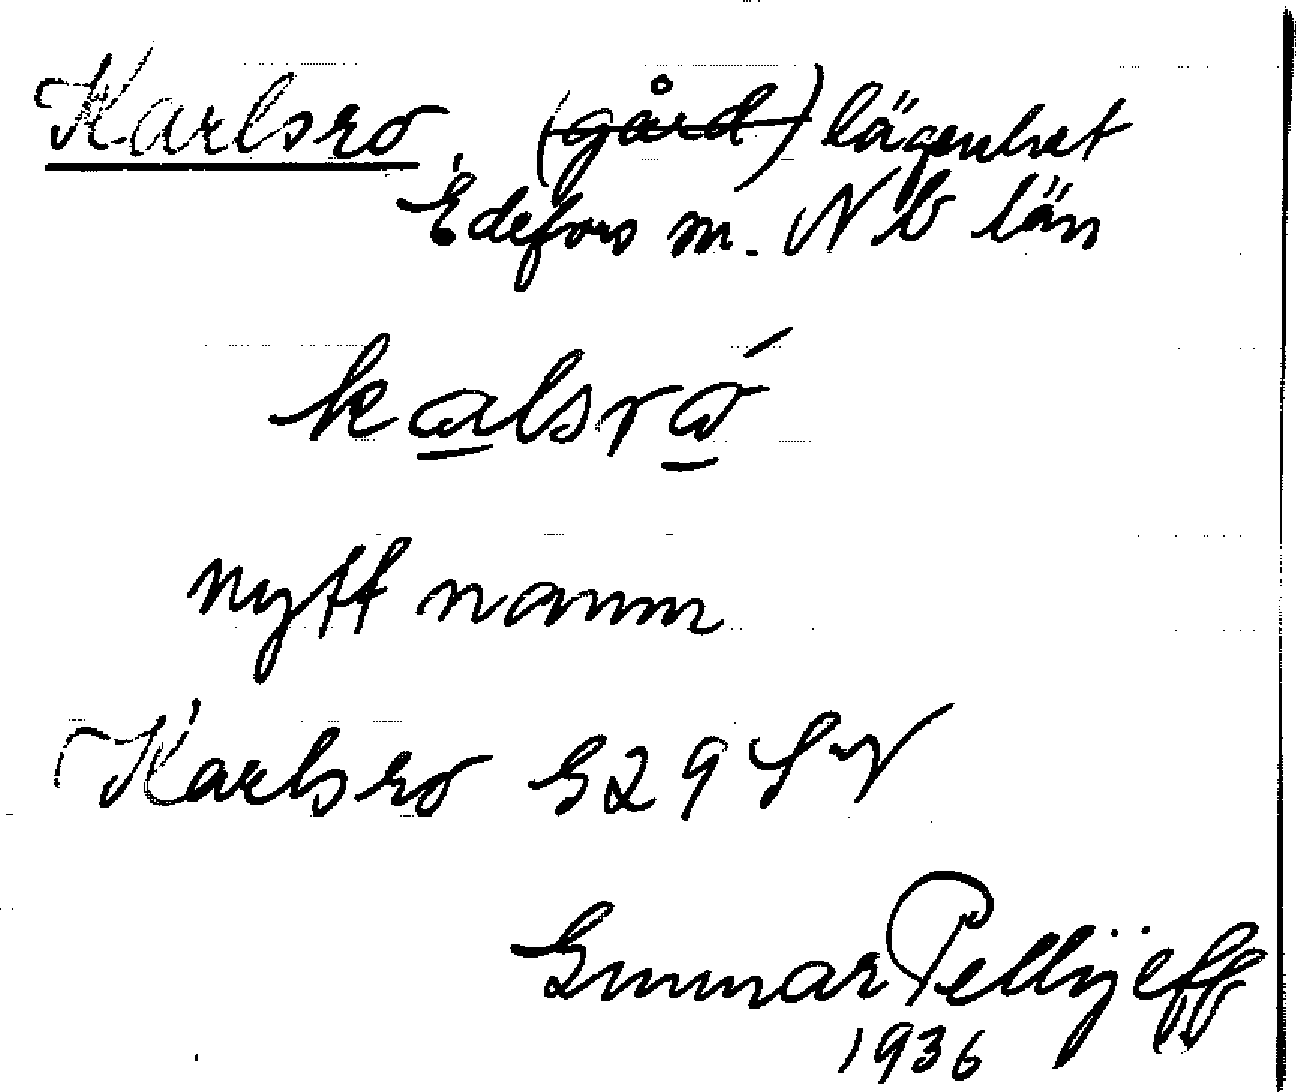 Karlsro, (gård) lägenhet
Edefors sn. Nb län
kalsró
nytt namn
Karlsro G29
Gunnar Pellijeff
1936